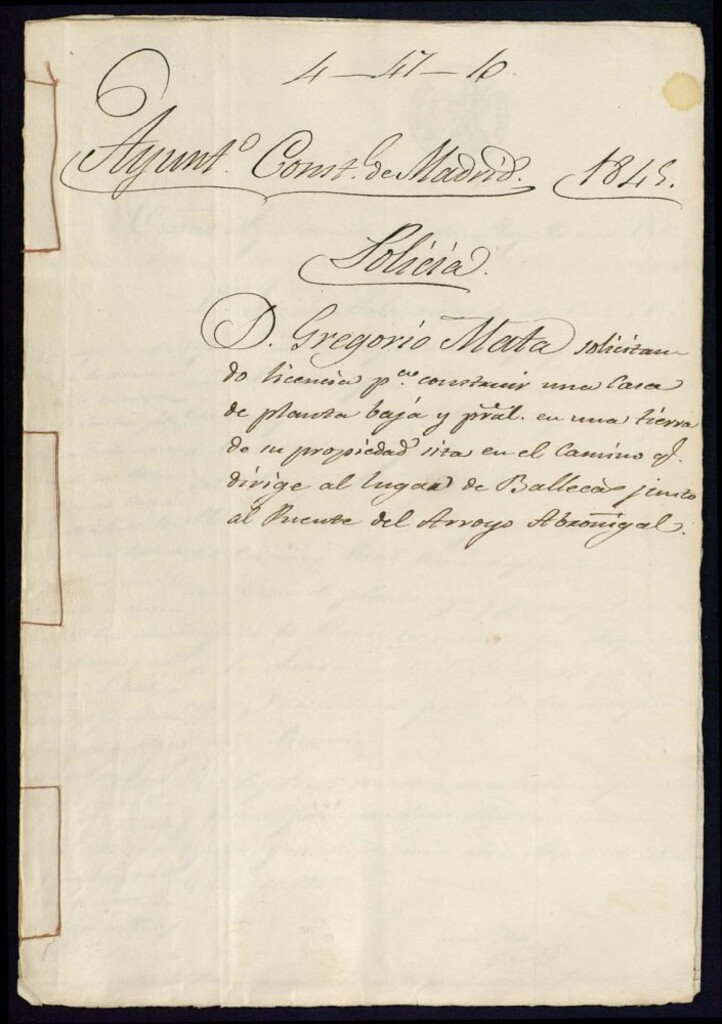 4-47-10.
Ayunt.º Const.l de Madrid. 1845.
Policia.
D. Gregorio Mata solicitan-
do licencia p.a construir una Casa
de planta baja y pral. en una tierra
de su propiedad sita en el Camino q.e
dirige al lugar de Ballecas junto
al Puente del Arroyo Abroñigal.